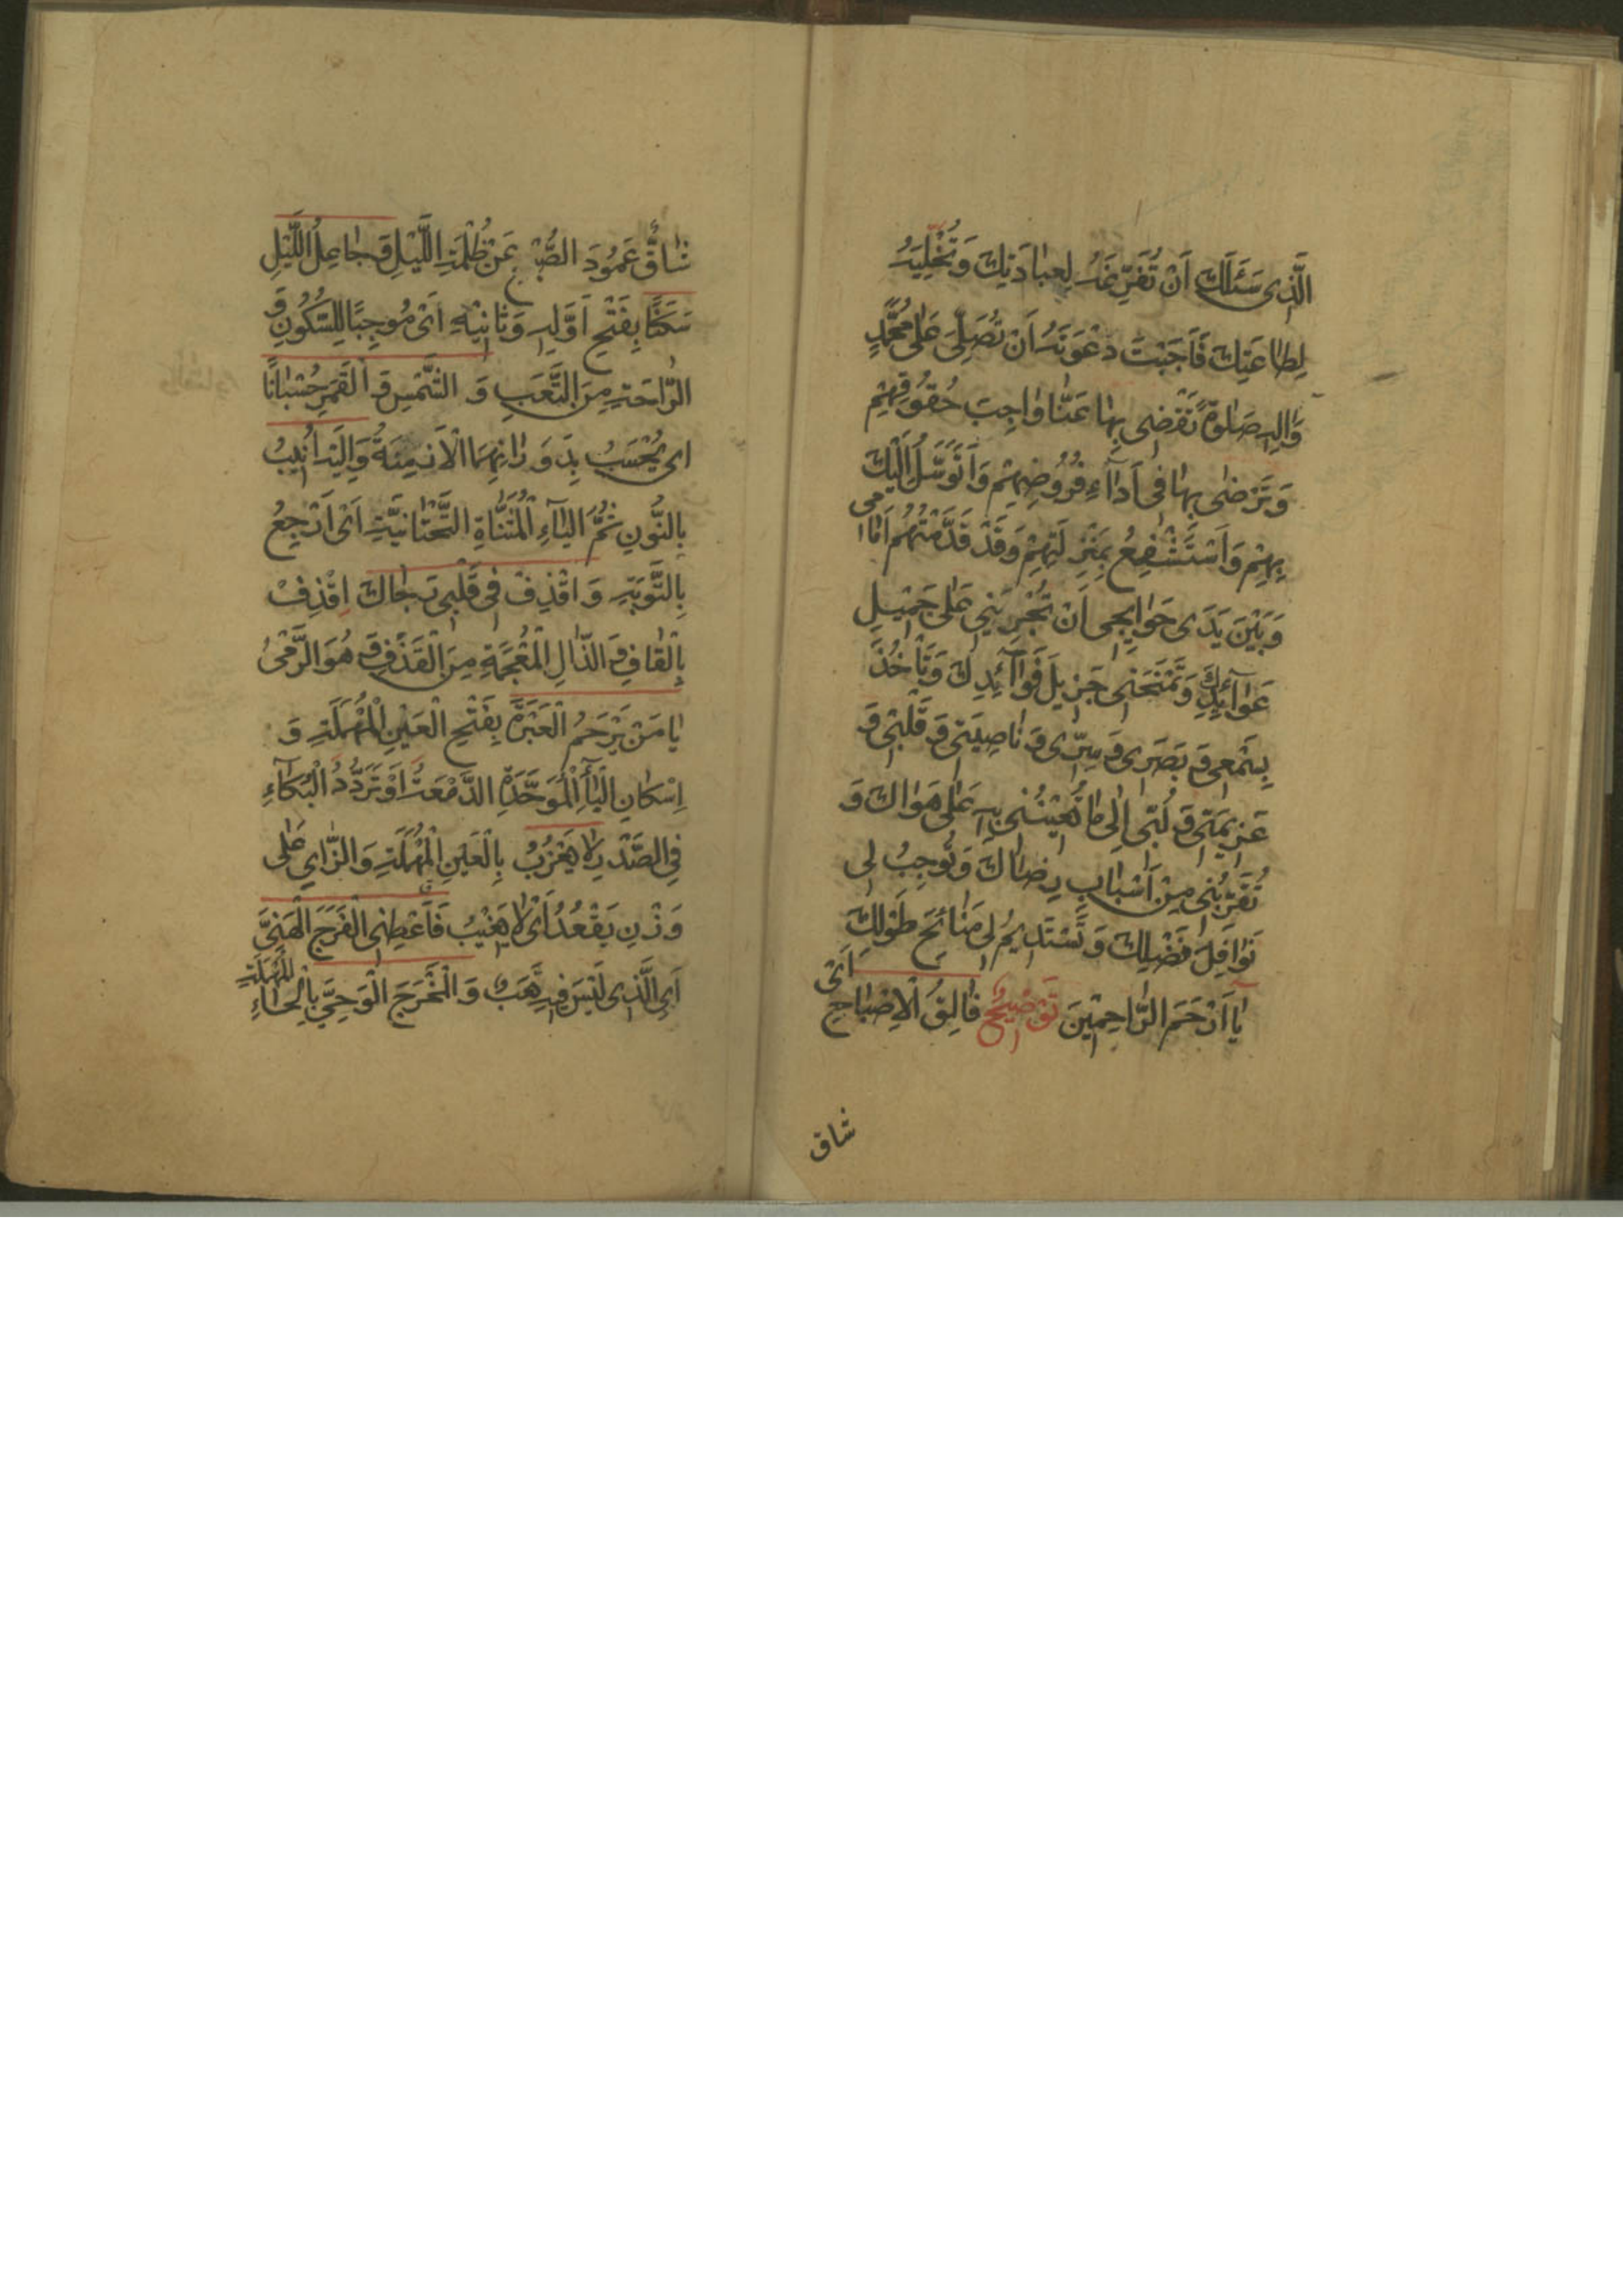 الَّذِی سَئَلَكَ اَنْ تُفَرِّغَهُ لِعِبَادَتِكَ وَتُخَلِّیَهُ
لِطَاعَتِكَ فَاَجَبْتَ دَعْوَتَهُ اَنْ تُصَلِّیَ عَلٰی مُحَمَّدٍ
وَاٰلِهِ صَلٰوةً تَقْضِی بِهَا عَنَّا وَاجِبَ حُقُوقِهِمْ
وَتَرْضٰی بِهَا فِی اَدَآءِ فُرُوضِهِمْ وَاَتَوَسَّلُ اِلَیْكَ
بِهِمْ وَاَسْتَشْفِعُ بِمَنْزِلَتِهِمْ وَقَدْ قَدَّمْتُهُمْ اَمَامِی
وَبَیْنَ یَدَی حَوَایِجِی اَنْ تُجْرِیَنِی عَلٰی جَمِیلِ
عَوَآئِدِكَ وَتَمْنَحَنِی جَزِیلَ فَوَآئِدِكَ وَتَاْخُذَ
بِسَمْعِی وَ بَصَرِی وَ سِرِّی وَ نَاصِیَتِی وَ قَلْبِی وَ
عَزِیمَتِی وَ لُبِّی اِلٰی مَا تُعِیْنُنِی بِهِ عَلٰی هَوَاكَ وَ
تُقَرِّبُنِی مِنْ اَسْبَابِ رِضَاكَ وَ تُوجِبُ لِی
نَوَافِلَ فَضْلِكَ وَ تَسْتَدِیمُ لِی مَنَائِحَ طَوْلِكَ
یَا اَرْحَمَ الرَّاحِمِیْنَ تَوْضِیحٌ فَالِقُ الْاِصْبَاحِ اَیْ
شاق
شَاقُّ عَمُودَ الصُّبْحِ عَنْ ظُلْمَةِ اللَّیْلِ وَ جَاعِلُ اللَّیْلِ
سَكَنًا بِفَتْحِ اَوَّلِهِ وَ ثَانِیْهِ اَیْ مُوجِبًا لِلسُّكُونِ وَ
الرَّاحَةِ مِنَ التَّعَبِ وَ الشَّمْسِ وَ الْقَمَرِ حُسْبَانًا
ای یُحْسَبُ بِدَوَرَانِهِمَا الْاَزْمِنَةُ وَاِلَیْهِ اُنِیبُ
بِالنُّونِ ثُمَّ الْیَآءِ الْمُثَنَّاةِ التَّحْتَانِیَّةِ اَیْ اَرْجِعُ
بِالتَّوْبَةِ وَ اقْذِفْ فِی قَلْبِی رَجَاكَ اِقْذِفْ
بِالْقَافِ وَ الذَّالِ الْمُعْجَمَةِ مِنَ الْقَذْفِ وَ هُوَ الرَّمْیُ
یَا مَنْ یَرْحَمُ الْعَبْرَةَ بِفَتْحِ الْعَیْنِ الْمُهْمَلَةِ وَ
اِسْكَانِ الْبَآءِ الْمُوَحَّدَةِ الدَّمْعَةُ اَوْ تَرَدُّدُ الْبُكَآءِ
فِی الصَّدْرِ لَا یَعْزُبُ بِالْعَیْنِ الْمُهْمَلَةِ وَ الزَّایِ عَلٰی
وَزْنِ یَقْعُدُ اَیْ لَا یَغِیْبُ فَاَعْطِنِی الْفَرَجَ الْهَنِیَّ
اَیِ الَّذِی لَیْسَ فِیهِ تَعَبٌ وَ الْمَخْرَجَ الْوَحِیَّ بِالْحَاءِ الْمُهْمَلَةِ